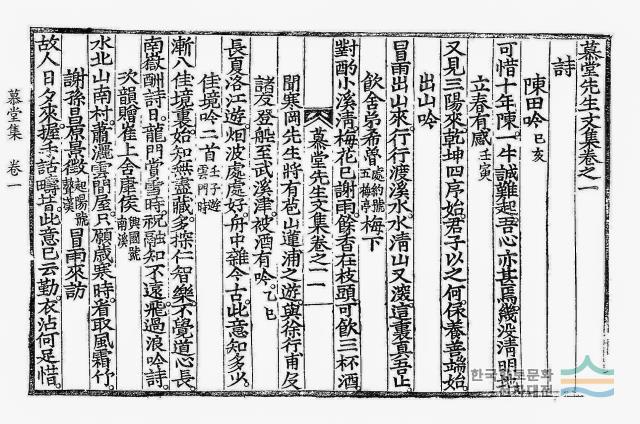 慕堂先生文集卷之一
詩
陳田吟 己亥
可惜十年陳一牛誠難起吾心亦甚焉幾沒淸明地
立春有感 壬寅
又見三陽來乾坤四序始君子以之何保養善端始
出山吟
冒雨出山來行行渡溪水水淸山又深這裏眞吾止
飮舍弟希魯 處約號五梅亭 梅下
對酌小溪淸梅花已謝雨餘香在枝頭可飮三杯酒
慕堂先生文集卷之一 一
聞寒岡先生將有芭山蓮浦之遊與徐行甫及
諸友登船至武溪津被酒有吟 乙巳
長夏洛江遊烟波處處好舟中難今古此意知多少
佳境吟二首 壬子遊雲門時
漸入佳境裏始知無盡藏多採仁智樂不覺道心長
南嶽酬詩日龍門賞雪時祝融知不遠飛過浪吟詩
次韻贈崔上舍康侯 興國號南溪
水北山南村蕭灑雲間屋只願歲寒時看取風霜竹
謝孫昌原景徵 起陽號聱漢 冒雨來訪
故人日夕來握手話疇昔此意已云勤衣沾何足惜
慕堂集 卷一
한국향토문화
전자대전